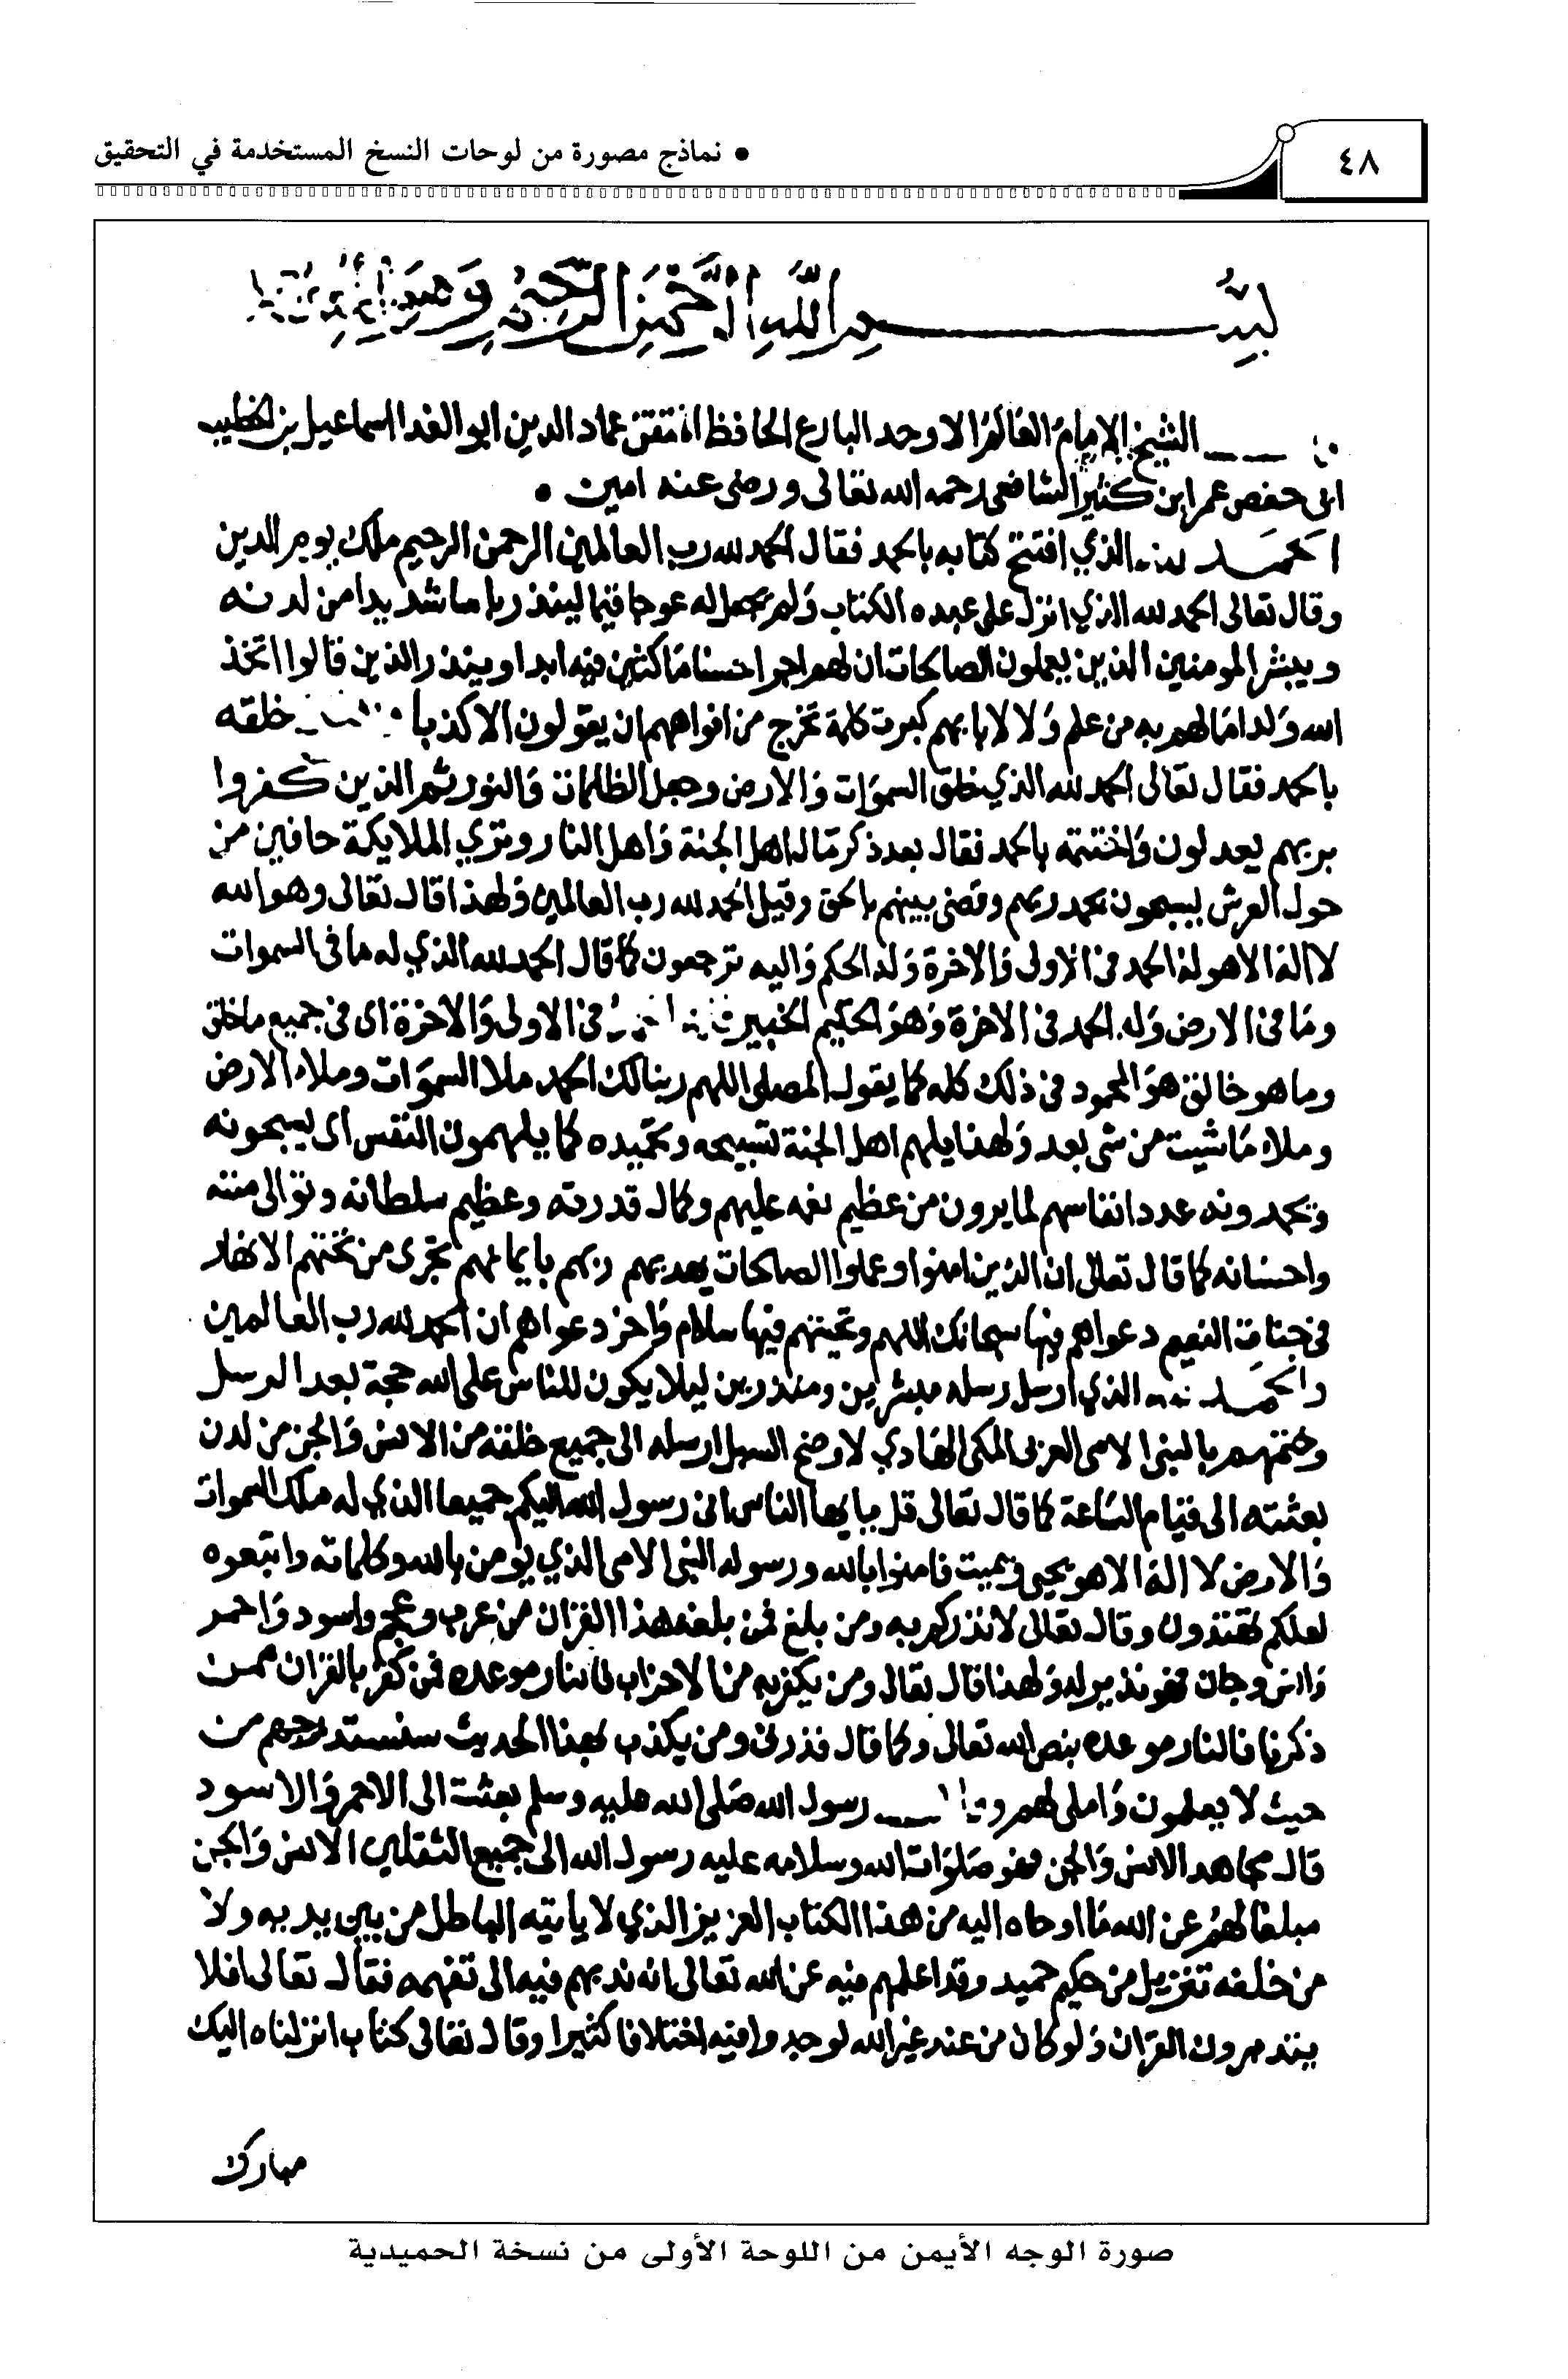 ٤٨
• نماذج مصورة من لوحات النسخ المستخدمة في التحقيق
بسم الله الرحمن الرحيم وهو
الشيخ الامام العالم الاوحد البارع الحافظ المتقن عماد الدين ابو الفدا اسماعيل بن الخطيب
ابى حفص عمر ابن كثير الشافعى رحمه الله تعالى ورضى عنه امين •
الحمد لله الذي افتتح كتابه بالحمد فقال الحمد لله رب العالمين الرحمن الرحيم ملك يوم الدين
وقال تعالى الحمد لله الذي انزل على عبده الكتاب ولم يجعل له عوجا قيما لينذر باسا شديدا من لدنه
ويبشر المومنين الذين يعملون الصالحات ان لهم اجرا حسنا ماكثين فيه ابدا وينذر الذين قالوا اتخذ
الله ولدا ما لهم به من علم ولا لابايهم كبرت كلمة تخرج من افواههم ان يقولون الا كذبا خلقه
بالحمد فقال تعالى الحمد لله الذي خلق السموات والارض وجعل الظلمات والنور ثم الذين كفروا
بربهم يعدلون واختتمه بالحمد فقال بعد ذكر مال اهل الجنة واهل النار وترى الملايكة حافين من
حول العرش يسبحون بحمد ربهم وقضى بينهم بالحق وقيل الحمد لله رب العالمين ولهذا قال تعالى وهو الله
لا اله الا هو له الحمد في الاولى والاخرة وله الحكم واليه ترجعون كما قال الحمد لله الذي له ما في السموات
وما في الارض وله الحمد في الاخرة وهو الحكيم الخبير في الاولى والاخرة اى في جميع ما خلق
وما هو خالق هو المحمود في ذلك كله كما يقول المصلى اللهم ربنا لك الحمد ملا السموات وملاء الارض
وملاء ما شيت من شى بعد ولهذا يلهم اهل الجنة تسبيحه وتحميده كما يلهمون النفس اى يسبحونه
ويحمدونه عدد انفاسهم لما يرون من عظيم نعمه عليهم وكمال قدرته وعظيم سلطانه وتوالى مننه
واحسانه كما قال تعالى ان الذين امنوا وعملوا الصالحات يهديهم ربهم بايمانهم تجرى من تحتهم الانهار
في جنات النعيم دعواهم فيها سبحانك اللهم وتحيتهم فيها سلام واخر دعواهم ان الحمد لله رب العالمين
والحمد لله الذي ارسل رسله مبشرين ومنذرين ليلا يكون للناس على الله حجة بعد الرسل
وختمهم بالنبى الامى العربى المكى الهادي لاوضح السبل ارسله الى جميع خلقه من الانس والجن من لدن
بعثته الى قيام الساعة كما قال تعالى قل يايها الناس انى رسول الله اليكم جميعا الذي له ملك السموات
والارض لا اله الا هو يحيى ويميت فامنوا بالله ورسوله النبى الامى الذي يومن بالله وكلماته واتبعوه
لعلكم تهتدون وقال تعالى لانذركم به ومن بلغ فمن بلغه هذا القران من عرب وعجم واسود واحمر
وانس وجان فهو نذير له ولهذا قال تعالى ومن يكفر به من الاحزاب فالنار موعده فمن كفر بالقران ممن
ذكرنا فالنار موعده بنص الله تعالى وكما قال فذرنى ومن يكذب بهذا الحديث سنستدرجهم من
حيث لا يعلمون واملى لهم وقال رسول الله صلى الله عليه وسلم بعثت الى الاحمر والاسود
قال مجاهد الانس والجن فهو صلوات الله وسلامه عليه رسول الله الى جميع الثقلين الانس والجن
مبلغا لهم عن الله ما اوحاه اليه من هذا الكتاب العزيز الذي لا ياتيه الباطل من بين يديه ولا
من خلفه تنزيل من حكيم حميد وقد اعلمهم فيه عن الله تعالى انه ندبهم فيه الى تفهمه فقال تعالى افلا
يتدبرون القران ولو كان من عند غير الله لوجدوا فيه اختلافا كثيرا وقال تعالى كتاب انزلناه اليك
مبارك
صورة الوجه الأيمن من اللوحة الأولى من نسخة الحميدية